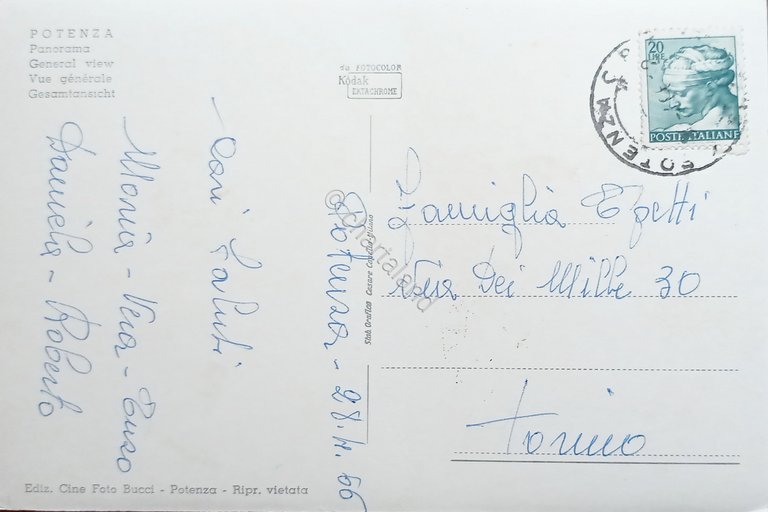 POTENZA
Panorama
General view
Vue générale
Gesamtansicht
da FOTOCOLOR
Kodak
EKTACHROME
20
LIRE
POSTE ITALIANE
POTENZA
Potenza - 28.4.66
Cari Saluti
Maria - Vera - Enzo
Daniela - Roberto
Famiglia
Via Dei Mille 30
Torino
Stab. Grafico Cesare Capello Milano
© chartaland
Ediz. Cine Foto Bucci - Potenza - Ripr. vietata